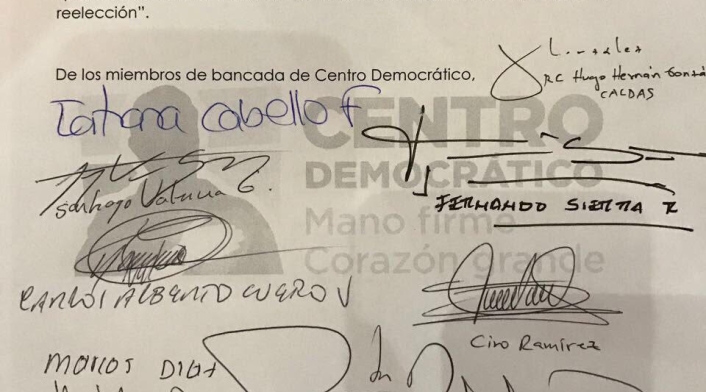 reelección".
De los miembros de bancada de Centro Democrático,
RC Hugo Hernán Gonzá
CALDAS
Tatiana Cabello F
CENTRO
DEMOCRÁTICO
Santiago Valencia G.
FERNANDO SIERRA R
Mano firme
Corazón grande
CARLOS ALBERTO CUERO V
Ciro Ramírez
MARCOS DIAZ